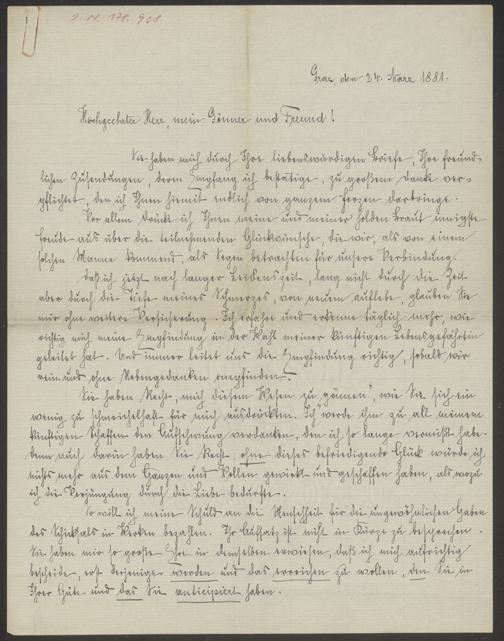 I. N. 178.908
Graz, den 24. März 1881.
Hochgeehrter Herr, mein Gönner und Freund!
Sie haben mich durch Ihre liebenswürdigen Briefe, Ihre freund-
lichen Zusendungen, deren Empfang ich bestätige, zu großem Danke ver-
pflichtet, den ich Ihnen hiemit endlich von ganzem Herzen darbringe.
Vor allem drücke ich Ihnen meine und meiner holden Braut innigste
Freude aus über die teilnehmenden Glückwünsche, die wir, als von einem
solchen Manne kommend, als Segen betrachten für unsere Verbindung.
Daß ich jetzt nach langer Leidenszeit, lang nicht durch die Zeit
aber durch die Tiefe meines Schmerzes, von neuem auflebe, glauben Sie
mir ohne weitere Versicherung. Ich erfahre und erkenne täglich mehr, wie
richtig mich meine Empfindung in der Wahl meiner künftigen Lebensgefährtin
geleitet hat. Und immer leitet uns die Empfindung richtig, sobald wir
rein und ohne Nebengedanken empfinden.
Sie haben Recht, mich diesem Wesen zu „gönnen", wie Sie sich ein
wenig zu schmeichelhaft für mich ausdrückten. Ich werde ihm zu all meinem
künftigen Schaffen den Aufschwung verdanken, den ich so lange vermißt habe.
Denn auch darin haben Sie Recht, ohne dieses befriedigende Glück würde ich
nichts mehr aus dem Ganzen und Vollen gewirkt und geschaffen haben, als wozu
ich die Verjüngung durch die Liebe bedurfte.
So will ich meine Schuld an die Menschheit für die ungewöhnlichen Gaben
des Schicksals in Werken bezahlen. Ihr Aufsatz ist nicht in Kürze zu besprechen.
Sie haben mir so große Ehre in demselben erwiesen, daß ich mich aufrichtig
bescheide, erst derjenige werden und das erreichen zu wollen, den Sie in
Ihrer Güte und das Sie anticipiert haben.